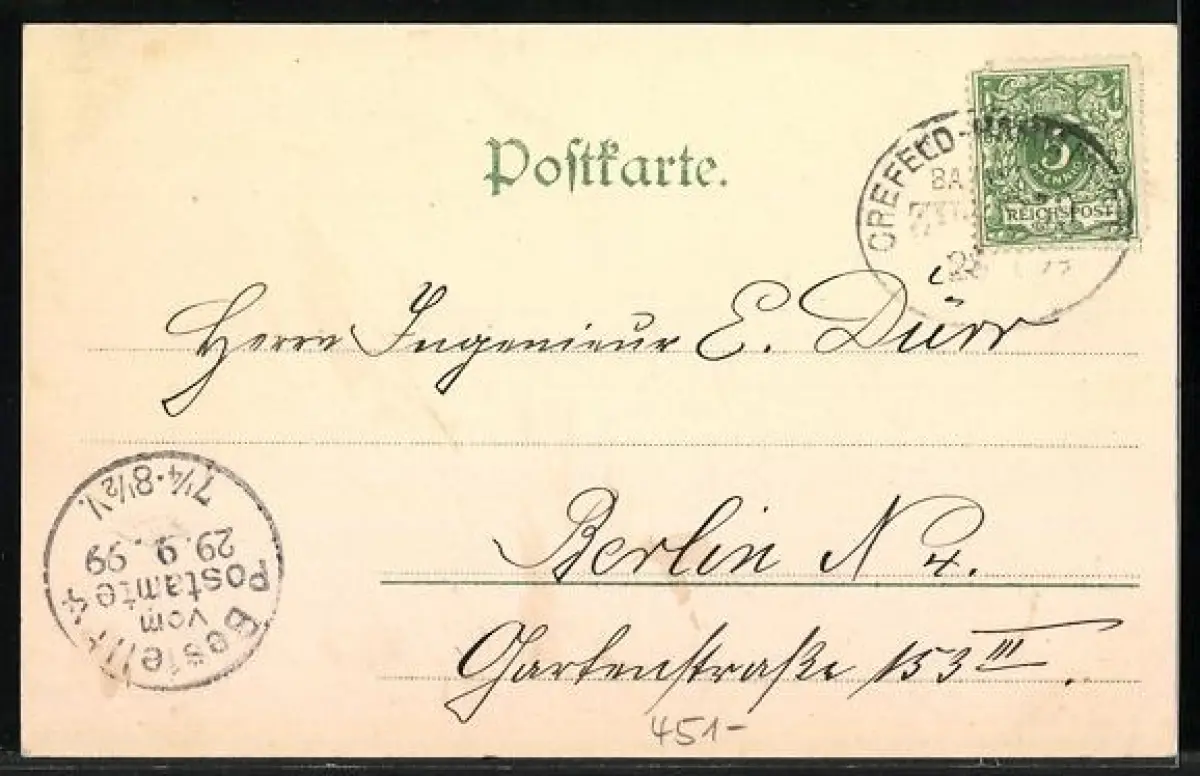 Postkarte.
CREFELD-
BA
5
PFENNIG
REICHSPOST
Herrn Ingenieur E. Dürr
Berlin N 4.
Gartenstraße 153 III.
Bestellt
vom
Postamte 4
29. 9. 99
7 1/4-8 1/2 V.
451-